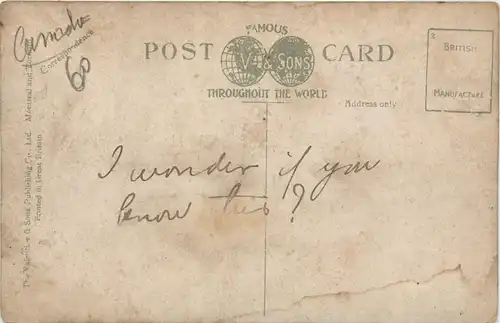 Canada
60
FAMOUS
POST CARD
V & SONS
THROUGHOUT THE WORLD
BRITISH
MANUFACTURE
Correspondence
Address only
The Valentine & Sons Publishing Co., Ltd. Montreal and
Printed in Great Britain
I wonder if you
know this?